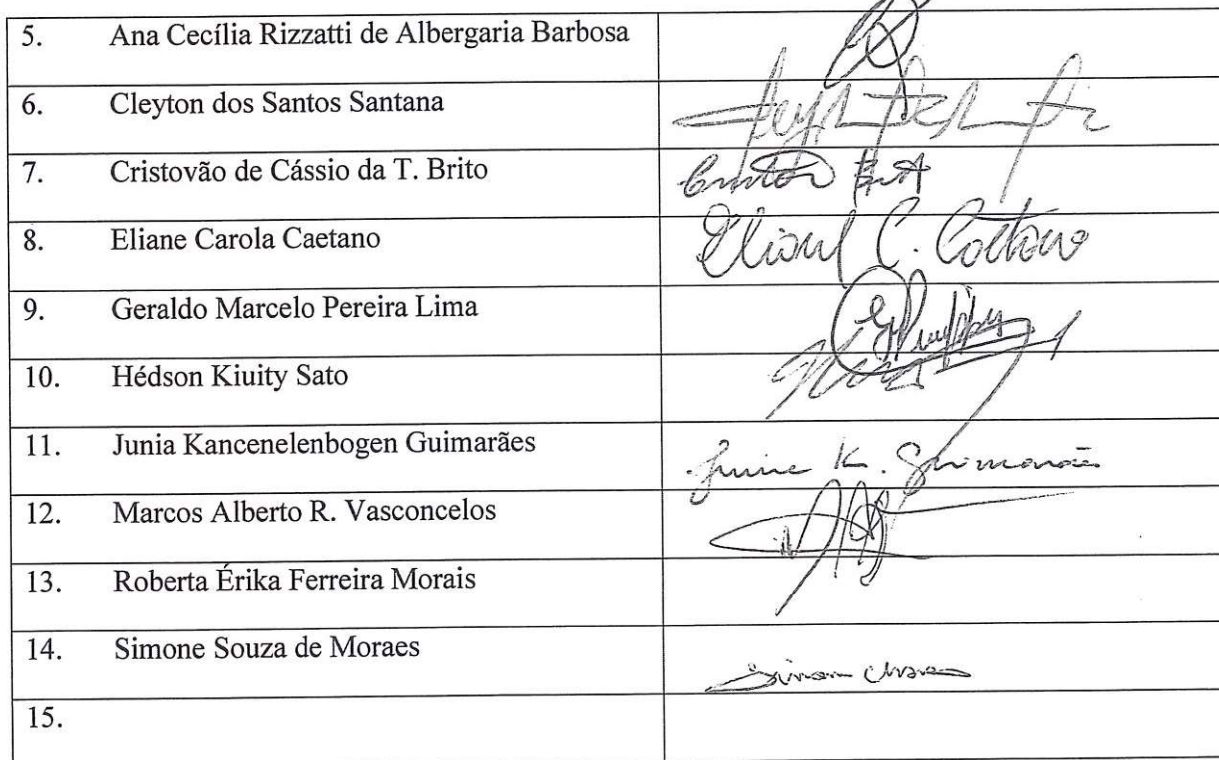 5. Ana Cecília Rizzatti de Albergaria Barbosa
6. Cleyton dos Santos Santana
7. Cristovão de Cássio da T. Brito
8. Eliane Carola Caetano
Eliane C. Caetano
9. Geraldo Marcelo Pereira Lima
10. Hédson Kiuity Sato
11. Junia Kancenelenbogen Guimarães
Junia K. Guimarães
12. Marcos Alberto R. Vasconcelos
13. Roberta Érika Ferreira Morais
14. Simone Souza de Moraes
15.